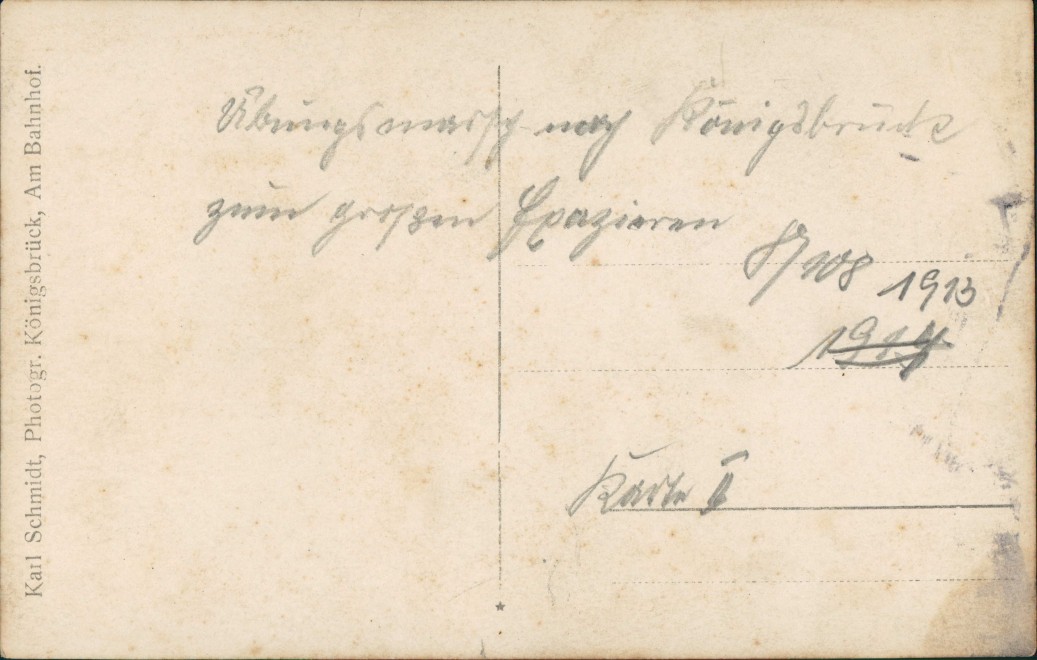 Karl Schmidt, Photogr. Königsbrück, Am Bahnhof.
Übungsmarsch nach Königsbrück
zum großen Expazieren
1913
1914
Karte II